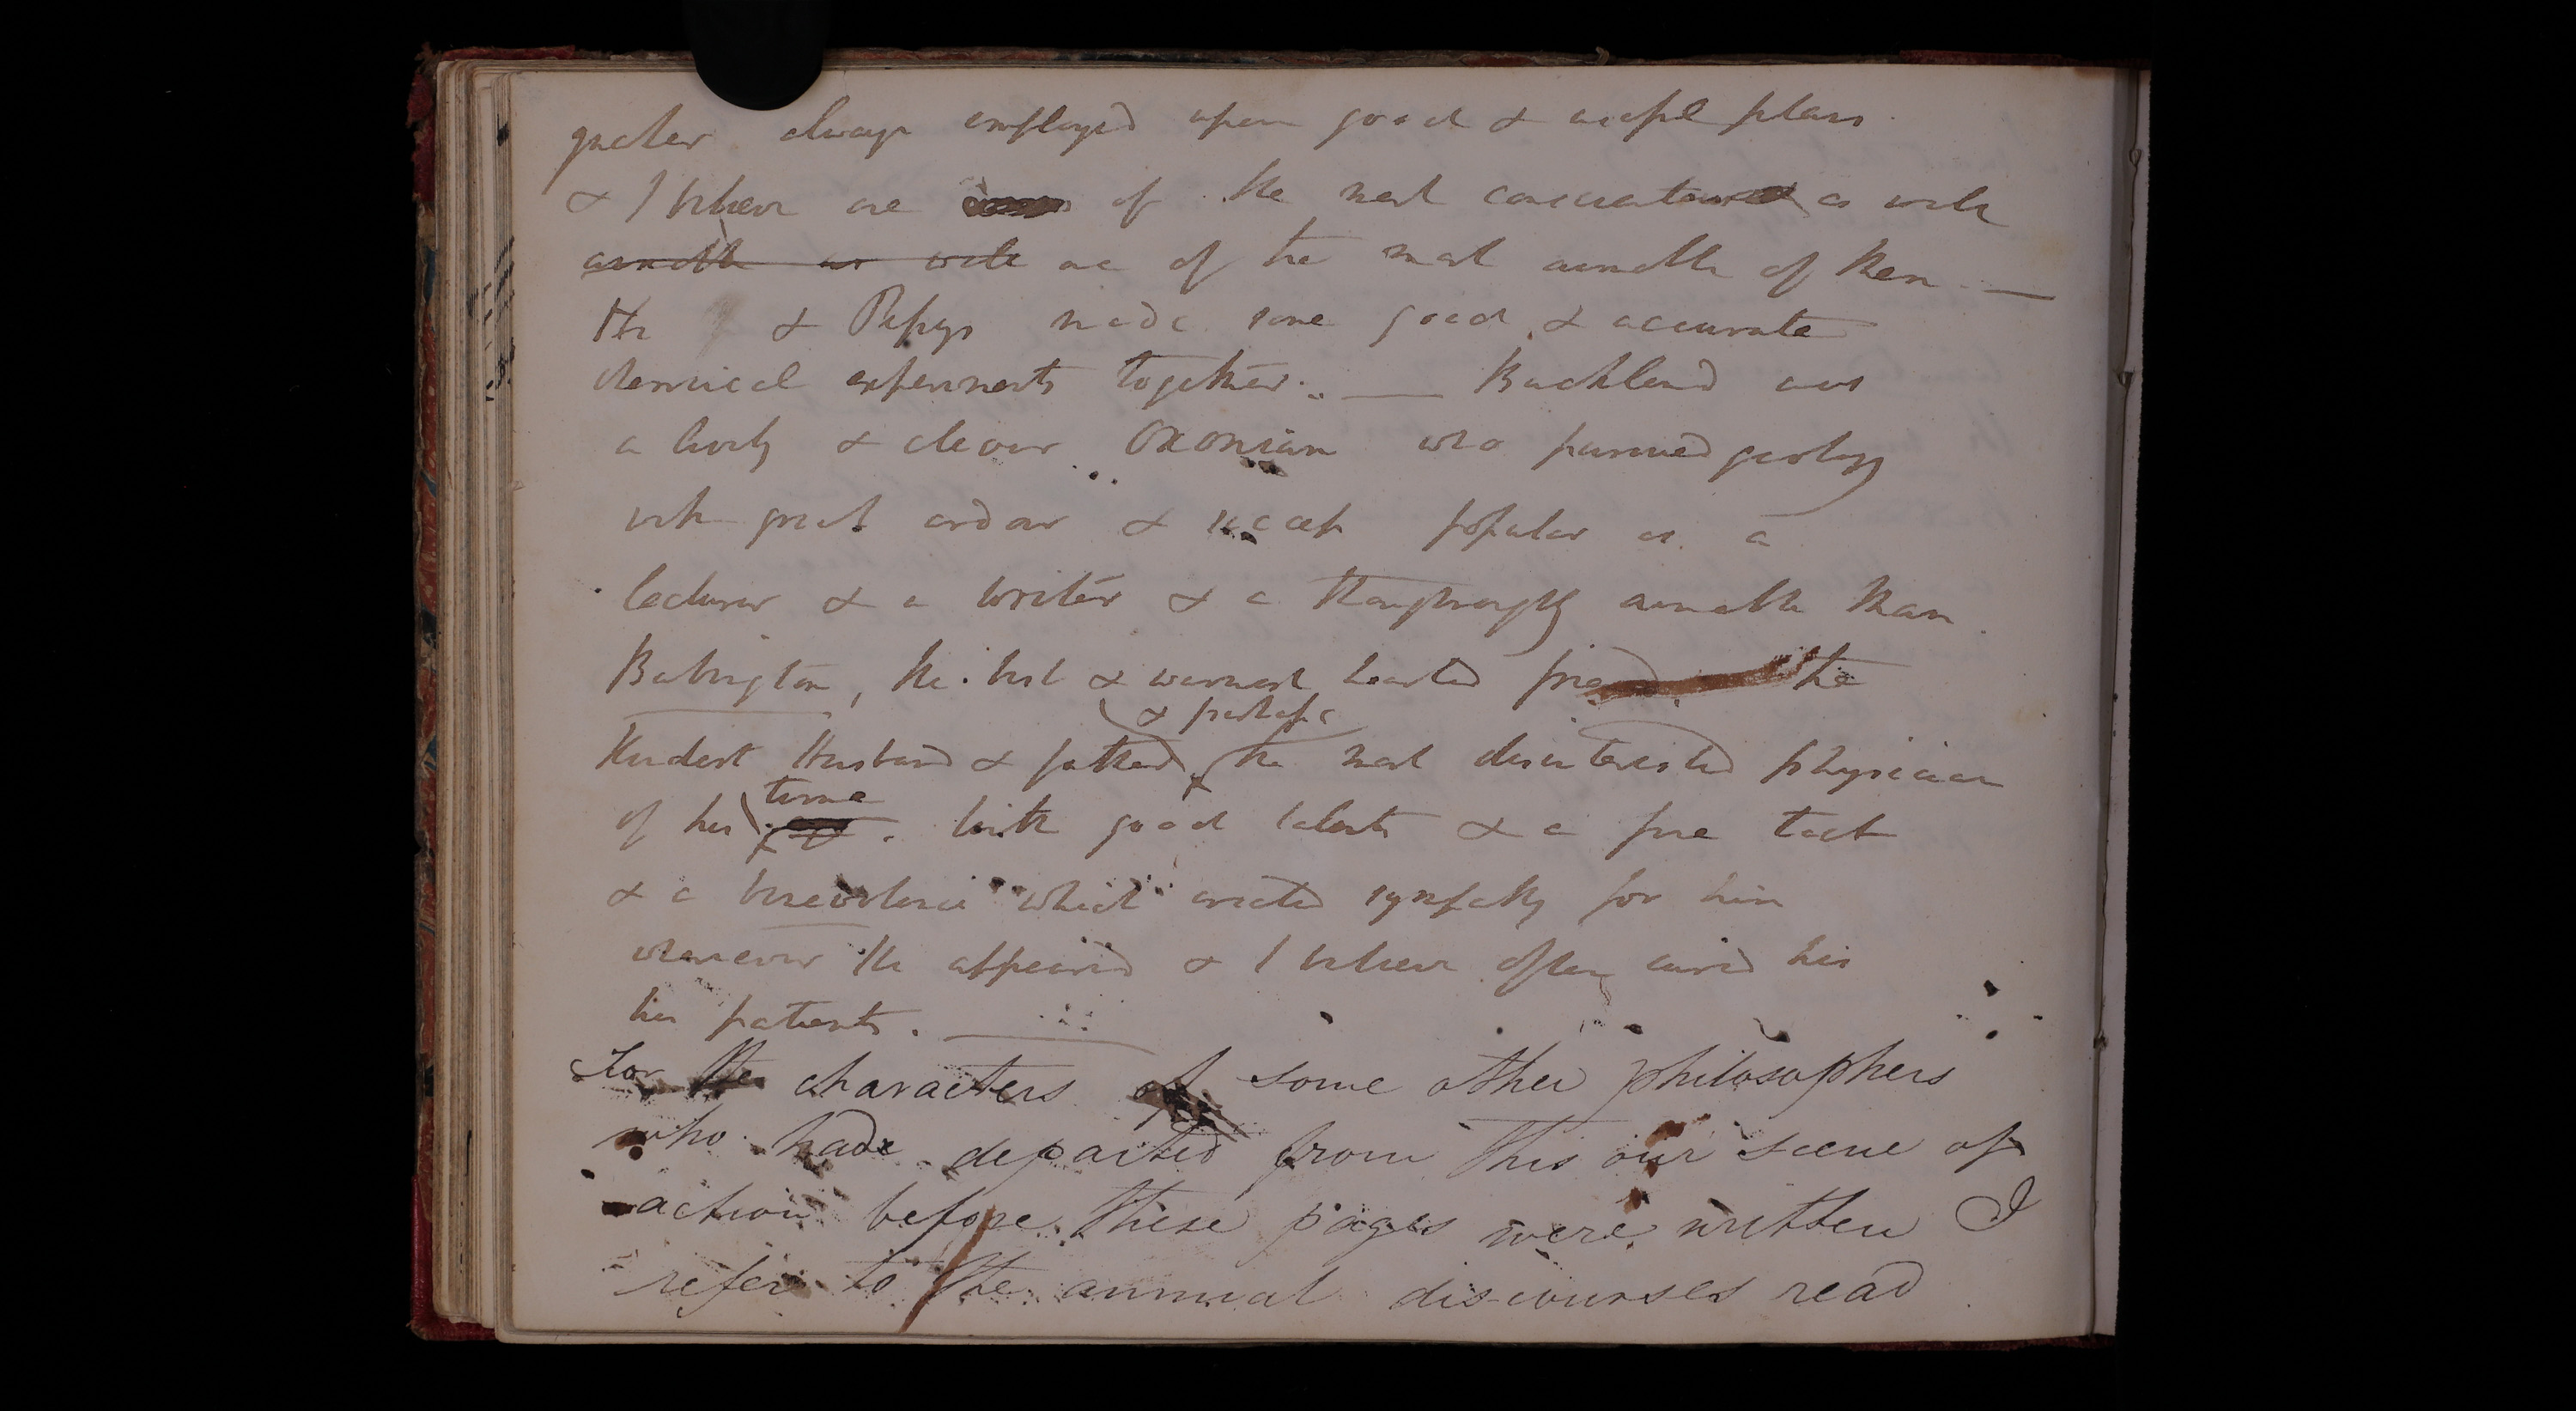 greater always employed upon good & useful plans.
& I believe one of the most conscientous as well
amiable as well one of the most amiable of Men —
He & Pepys made some good & accurate
chemical experiments together. — Buckland was
a lively & clever Oxonian who pursued geology
with great ardour & popular as a
lecturer & a writer & a thoughroughly amiable Man.
Babington, the best & warmest hearted friend the
& perhaps
Kindest Husband & father the most disinterested physician
time
of his age. with good talents & a fine tact
& a benevolence which created sympathy for him
wherever He appeared & I believe often cured his
his patients. —
For the characters of some other philosophers
who have departed from this our scene of
action before these pages were written I
refer to the annual discourses read